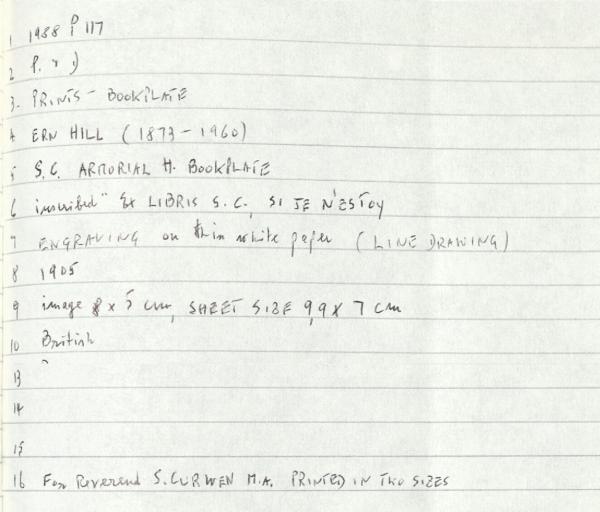 1 1988 P 117
2 P. & D
3. PRINTS - BOOKPLATE
4 ERN HILL (1873-1960)
5 S.C. ARMORIAL H. BOOKPLATE
6 inscribed " Ex LIBRIS S.C, SI JE N'ESTOY
7 ENGRAVING on thin white paper (LINE DRAWING)
8 1905
9 image 8 x 5 cm, SHEET SIZE 9,9 X 7 cm
10 British
13
14
15
16 For Reverend S. CURWEN M.A. PRINTED IN TWO SIZES